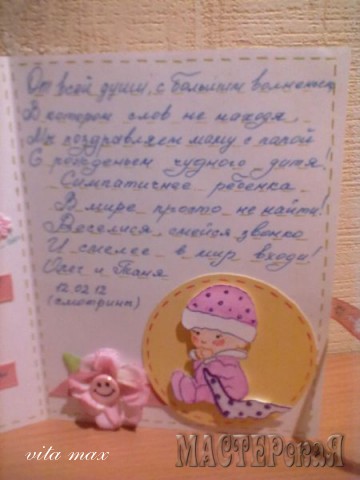 От всей души, с большим волненьем
В котором слов не находя
Мы поздравляем маму с папой
С рожденьем чудного дитя!
Симпатичнее ребенка
В мире просто не найти!
Веселися, смейся звонко
И смелее в мир входи!
Олег и Таня
12.02.12
(смотрины)
vita max
МАСТЕРская